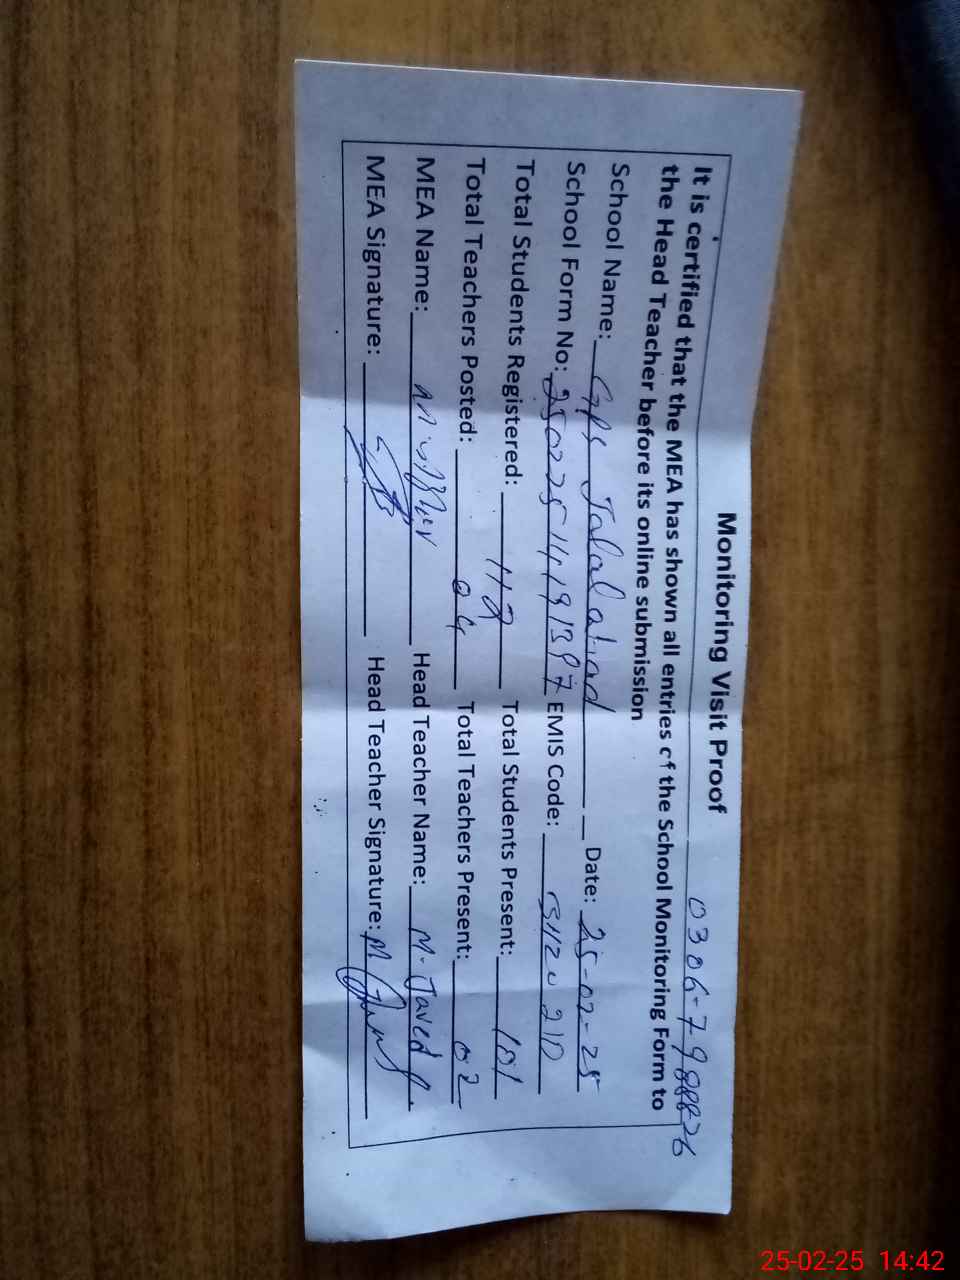 Monitoring Visit Proof
0306-7988826
It is certified that the MEA has shown all entries of the School Monitoring Form to
the Head Teacher before its online submission
School Name: GPS Jalalabad Date: 25-02-25
School Form No: EMIS Code:
Total Students Registered: 112 Total Students Present: 101
Total Teachers Posted: 04 Total Teachers Present: 02
MEA Name: Head Teacher Name: M. Javed
MEA Signature: Head Teacher Signature:
25-02-25 14:42